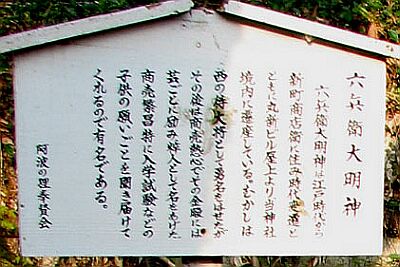 六兵衛大明神
六兵衛大明神は江戸時代から
新町商店街に住み時代の変遷と
ともに丸新ビル屋上より当神社
境内に遷座している。むかしは
西の侍大将として勇名をはせたが
その後は
芸ごとに励み 将人として名をもけた
商売繁昌特に入学試験などの
子供の願いごとを聞き届けて
くれるので有名である。
阿波の狸奉賛会